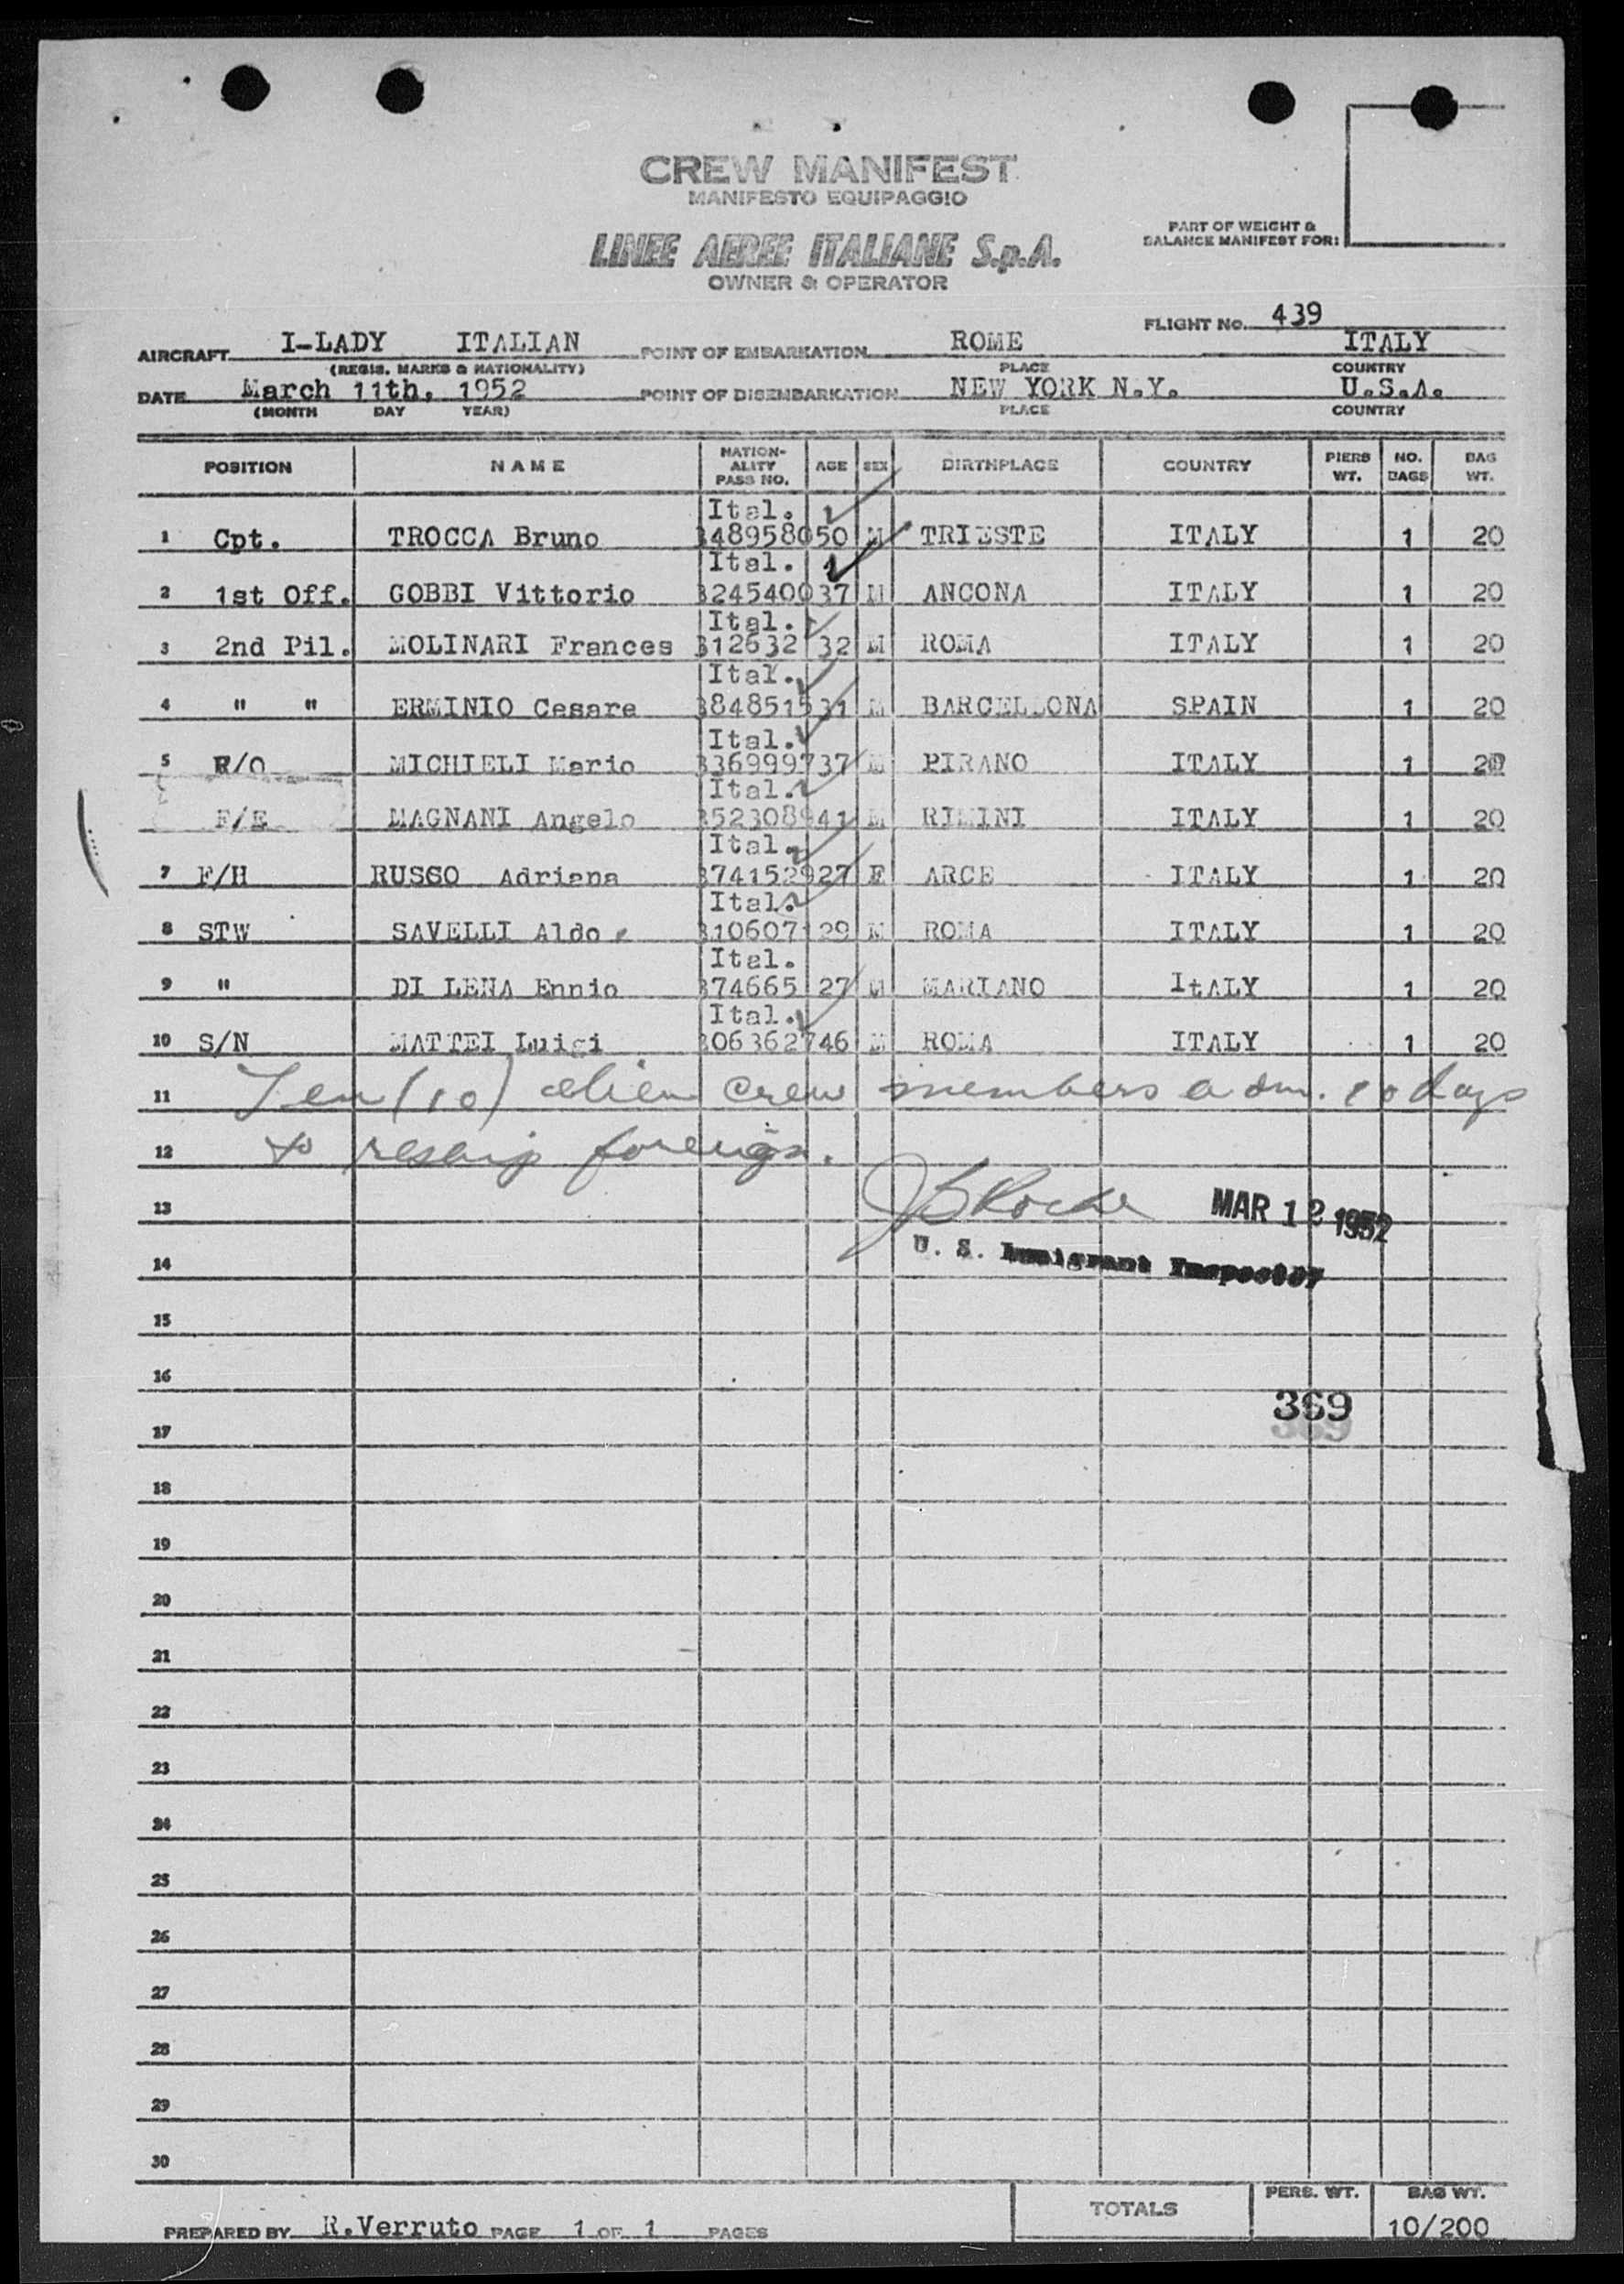 CREW MANIFEST
MANIFESTO EQUIPAGGIO
LINEE AEREE ITALIANE S.p.A.
OWNER & OPERATOR
PART OF WEIGHT &
BALANCE MANIFEST FOR:
FLIGHT No. 439
AIRCRAFT I-LADY ITALIAN POINT OF EMBARKATION ROME ITALY
(REGIS. MARKS & NATIONALITY) PLACE COUNTRY
DATE March 11th, 1952 POINT OF DISEMBARKATION NEW YORK N.Y. U.S.A.
(MONTH DAY YEAR) PLACE COUNTRY
POSITION NAME NATION-ALITY PASS NO. AGE SEX BIRTHPLACE COUNTRY PIERS WT. NO. BAGS BAG WT.
Ital.
1 Cpt. TROCCA Bruno 3489580 50 M TRIESTE ITALY 1 20
Ital.
2 1st Off. GOBBI Vittorio 3245400 37 M ANCONA ITALY 1 20
Ital.
3 2nd Pil. MOLINARI Frances 312632 32 M ROMA ITALY 1 20
Ital.
4 " " ERMINIO Cesare 3848515 31 M BARCELLONA SPAIN 1 20
Ital.
5 R/O MICHIELI Mario 3369997 37 M PIRANO ITALY 1 20
Ital.
F/E MAGNANI Angelo 3523089 41 M RIMINI ITALY 1 20
Ital.
7 F/H RUSSO Adriana 3741529 27 F ARCE ITALY 1 20
Ital.
8 STW SAVELLI Aldo 3106071 29 M ROMA ITALY 1 20
Ital.
9 " DI LENA Ennio 374665 27 M MARIANO ItALY 1 20
Ital.
10 S/N MATTEI Luigi 3063627 46 M ROMA ITALY 1 20
11 Ten (10) alien crew members adm. 10 days
12 to reship foreign.
13 MAR 12 1952
14 U. S. Immigrant Inspector
15
16
369
17
18
19
20
21
22
23
24
25
26
27
28
29
30
TOTALS PERS. WT. BAG WT.
PREPARED BY R.Verruto PAGE 1 OF 1 PAGES 10/200